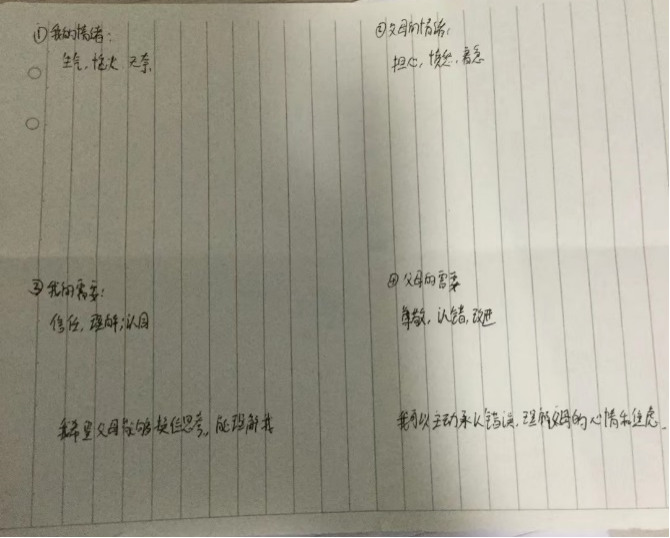 ①我的情绪:
生气、恼火 无奈
②父母的情绪:
担心, 愤怒, 着急
③我的需要:
信任, 理解;认同
④父母的需要
尊敬, 认错, 改进
我希望父母能够换位思考, 能理解我
我可以主动承认错误, 理解父母的心情和焦虑.